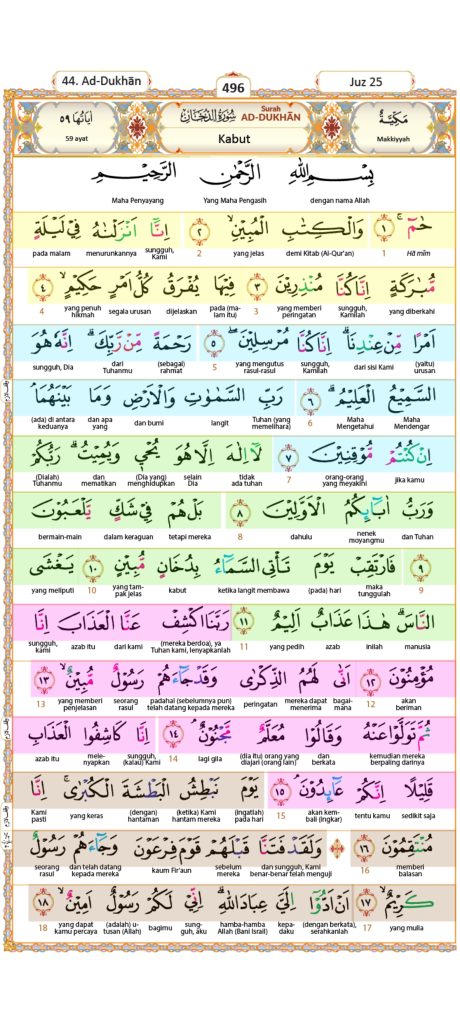 44. Ad-Dukhān
496
Juz 25
اٰيَاتُهَا ٥٩
59 ayat
سُوْرَةُ الدُّخَانِ
Surah
AD-DUKHĀN
Kabut
مَكِّيَّةٌ
Makkiyyah
بِسْمِ اللّٰهِ الرَّحْمٰنِ الرَّحِيْمِ
dengan nama Allah Yang Maha Pengasih Maha Penyayang
حٰمۤ ۚ ١ وَالْكِتٰبِ الْمُبِيْنِۙ ٢ اِنَّآ اَنْزَلْنٰهُ فِيْ لَيْلَةٍ
Hā mīm 1 demi Kitab (Al-Qur'an) yang jelas 2 sungguh, Kami menurunkannya pada malam
مُّبٰرَكَةٍ اِنَّا كُنَّا مُنْذِرِيْنَ ٣ فِيْهَا يُفْرَقُ كُلُّ اَمْرٍ حَكِيْمٍۙ ٤
yang diberkahi sungguh, Kamilah yang memberi peringatan 3 pada (malam itu) dijelaskan segala urusan yang penuh hikmah 4
اَمْرًا مِّنْ عِنْدِنَاۗ اِنَّا كُنَّا مُرْسِلِيْنَۖ ٥ رَحْمَةً مِّنْ رَّبِّكَۗ اِنَّهٗ هُوَ
(yaitu) urusan dari sisi Kami sungguh, Kamilah yang mengutus rasul-rasul 5 (sebagai) rahmat dari Tuhanmu sungguh, Dia
السَّمِيْعُ الْعَلِيْمُۗ ٦ رَبِّ السَّمٰوٰتِ وَالْاَرْضِ وَمَا بَيْنَهُمَاۘ
Maha Mendengar Maha Mengetahui 6 Tuhan (yang memelihara) langit dan bumi dan apa yang (ada) di antara keduanya
اِنْ كُنْتُمْ مُّوْقِنِيْنَ ٧ لَآ اِلٰهَ اِلَّا هُوَ يُحْيٖ وَيُمِيْتُۗ رَبُّكُمْ
jika kamu orang-orang yang meyakini 7 tidak ada tuhan selain Dia (Dia yang) menghidupkan dan mematikan (Dialah) Tuhanmu
وَرَبُّ اٰبَاۤىِٕكُمُ الْاَوَّلِيْنَ ٨ بَلْ هُمْ فِيْ شَكٍّ يَّلْعَبُوْنَ
dan Tuhan nenek moyangmu dahulu 8 tetapi mereka dalam keraguan bermain-main
٩ فَارْتَقِبْ يَوْمَ تَأْتِى السَّمَاۤءُ بِدُخَانٍ مُّبِيْنٍ ١٠ يَغْشَى
9 maka tunggulah (pada) hari ketika langit membawa kabut yang tampak jelas 10 yang meliputi
النَّاسَۗ هٰذَا عَذَابٌ اَلِيْمٌ ١١ رَبَّنَا اكْشِفْ عَنَّا الْعَذَابَ اِنَّا
manusia inilah azab yang pedih 11 (mereka berdoa), ya Tuhan kami, lenyapkanlah dari kami azab itu sungguh, kami
مُؤْمِنُوْنَ ١٢ اَنّٰى لَهُمُ الذِّكْرٰى وَقَدْ جَاۤءَهُمْ رَسُوْلٌ مُّبِيْنٌۙ ١٣
akan beriman 12 bagaimana mereka dapat menerima peringatan padahal (sebelumnya pun) telah datang kepada mereka seorang rasul yang memberi penjelasan 13
ثُمَّ تَوَلَّوْا عَنْهُ وَقَالُوْا مُعَلَّمٌ مَّجْنُوْنٌۘ ١٤ اِنَّا كَاشِفُوا الْعَذَابِ
kemudian mereka berpaling darinya dan berkata (dia itu) orang yang diajari (orang lain) lagi gila 14 sungguh, (kalau) Kami melenyapkan azab itu
قَلِيْلًا اِنَّكُمْ عَاۤىِٕدُوْنَۘ ١٥ يَوْمَ نَبْطِشُ الْبَطْشَةَ الْكُبْرٰىۚ اِنَّا
sedikit saja tentu kamu akan kembali (ingkar) 15 (ingatlah) pada hari (ketika) Kami hantam mereka (dengan) hantaman yang keras Kami pasti
مُنْتَقِمُوْنَ ١٦ وَلَقَدْ فَتَنَّا قَبْلَهُمْ قَوْمَ فِرْعَوْنَ وَجَاۤءَهُمْ رَسُوْلٌ
memberi balasan 16 dan sungguh, Kami benar-benar telah menguji sebelum mereka kaum Fir'aun dan telah datang kepada mereka seorang rasul
كَرِيْمٌۙ ١٧ اَنْ اَدُّوْٓا اِلَيَّ عِبَادَ اللّٰهِۗ اِنِّيْ لَكُمْ رَسُوْلٌ اَمِيْنٌۙ ١٨
yang mulia 17 (dengan berkata), serahkanlah kepadaku hamba-hamba Allah (Bani Israil) sungguh, aku bagimu (adalah) utusan (Allah) yang dapat kamu percaya 18